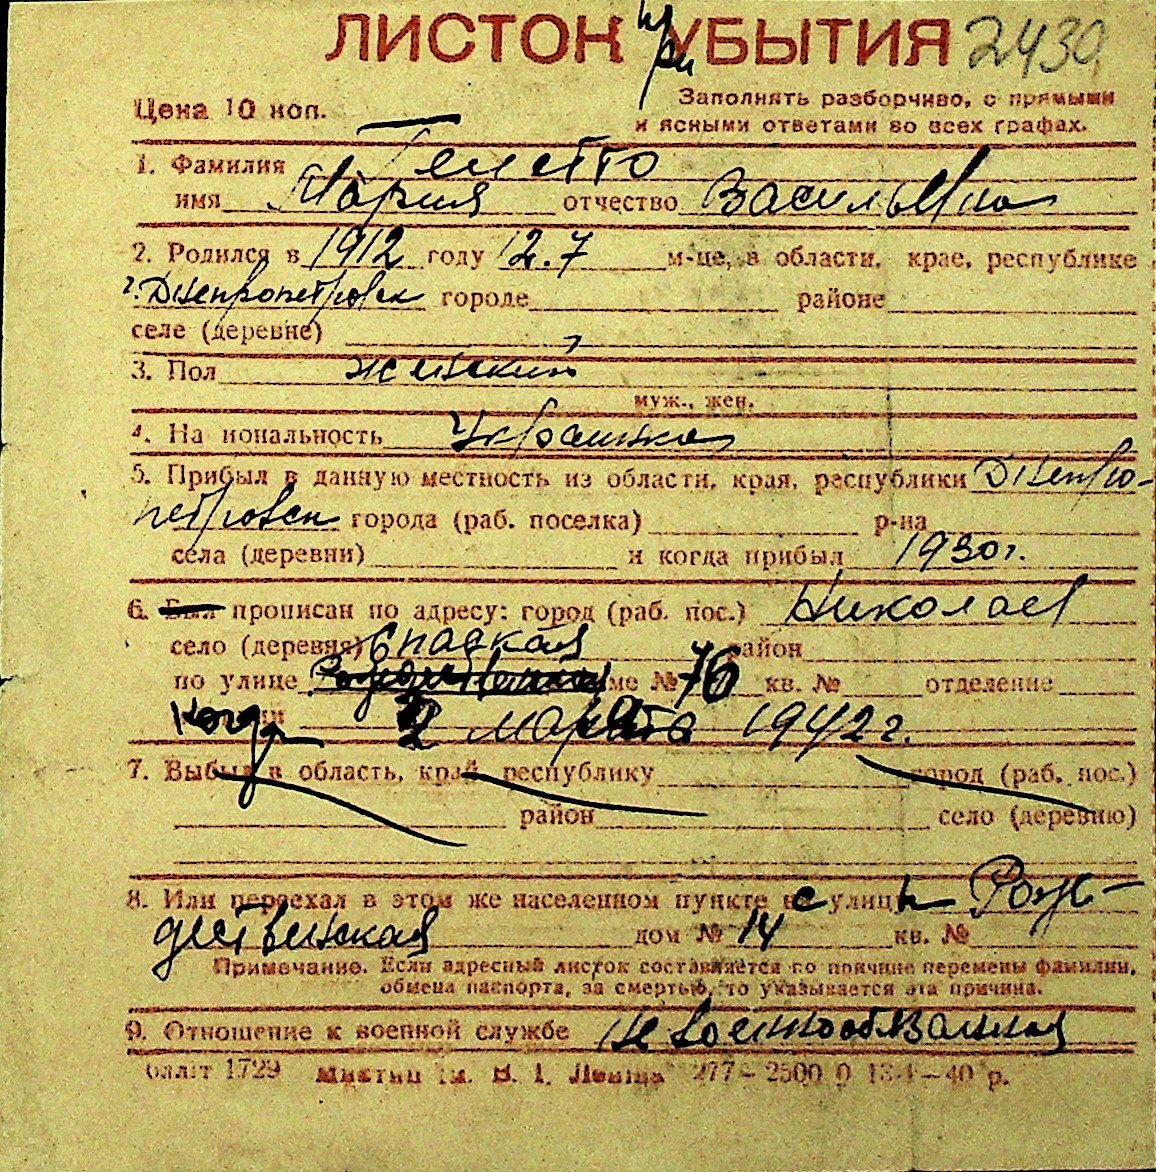 ЛИСТОК при УБЫТИЯ 2430
Цена 10 коп.
Заполнять разборчиво, с прямыми
и ясными ответами во всех графах.
1. Фамилия
имя Мария отчество Васильевна
2. Родился в 1912 году 12.7 м-це, в области, крае, республике
г. Днепропетровск городе районе
селе (деревне)
3. Пол женский
муж., жен.
4. На иональность Украинка
5. Прибыл в данную местность из области, края, республики Днепро-
петровск города (раб. поселка) р-на
села (деревни) и когда прибыл 1930 г.
6. Был прописан по адресу: город (раб. пос.) Николаев
село (деревня) Спасская район
по улице Рождественская ме № 76 кв. № отделение
Когда 2 марта 1942 г.
7. Выбыл в область, край, республику город (раб. пос.)
район село (деревню)
8. Или переехал в этом же населенном пункте с улицы Рож-
дественская дом № 14 кв. №
Примечание. Если адресный листок составляется по причине перемены фамилии,
обмена паспорта, за смертью, то указывается эта причина.
9. Отношение к военной службе не военнообязанная
1729 277 – 2500 0 – 40 р.